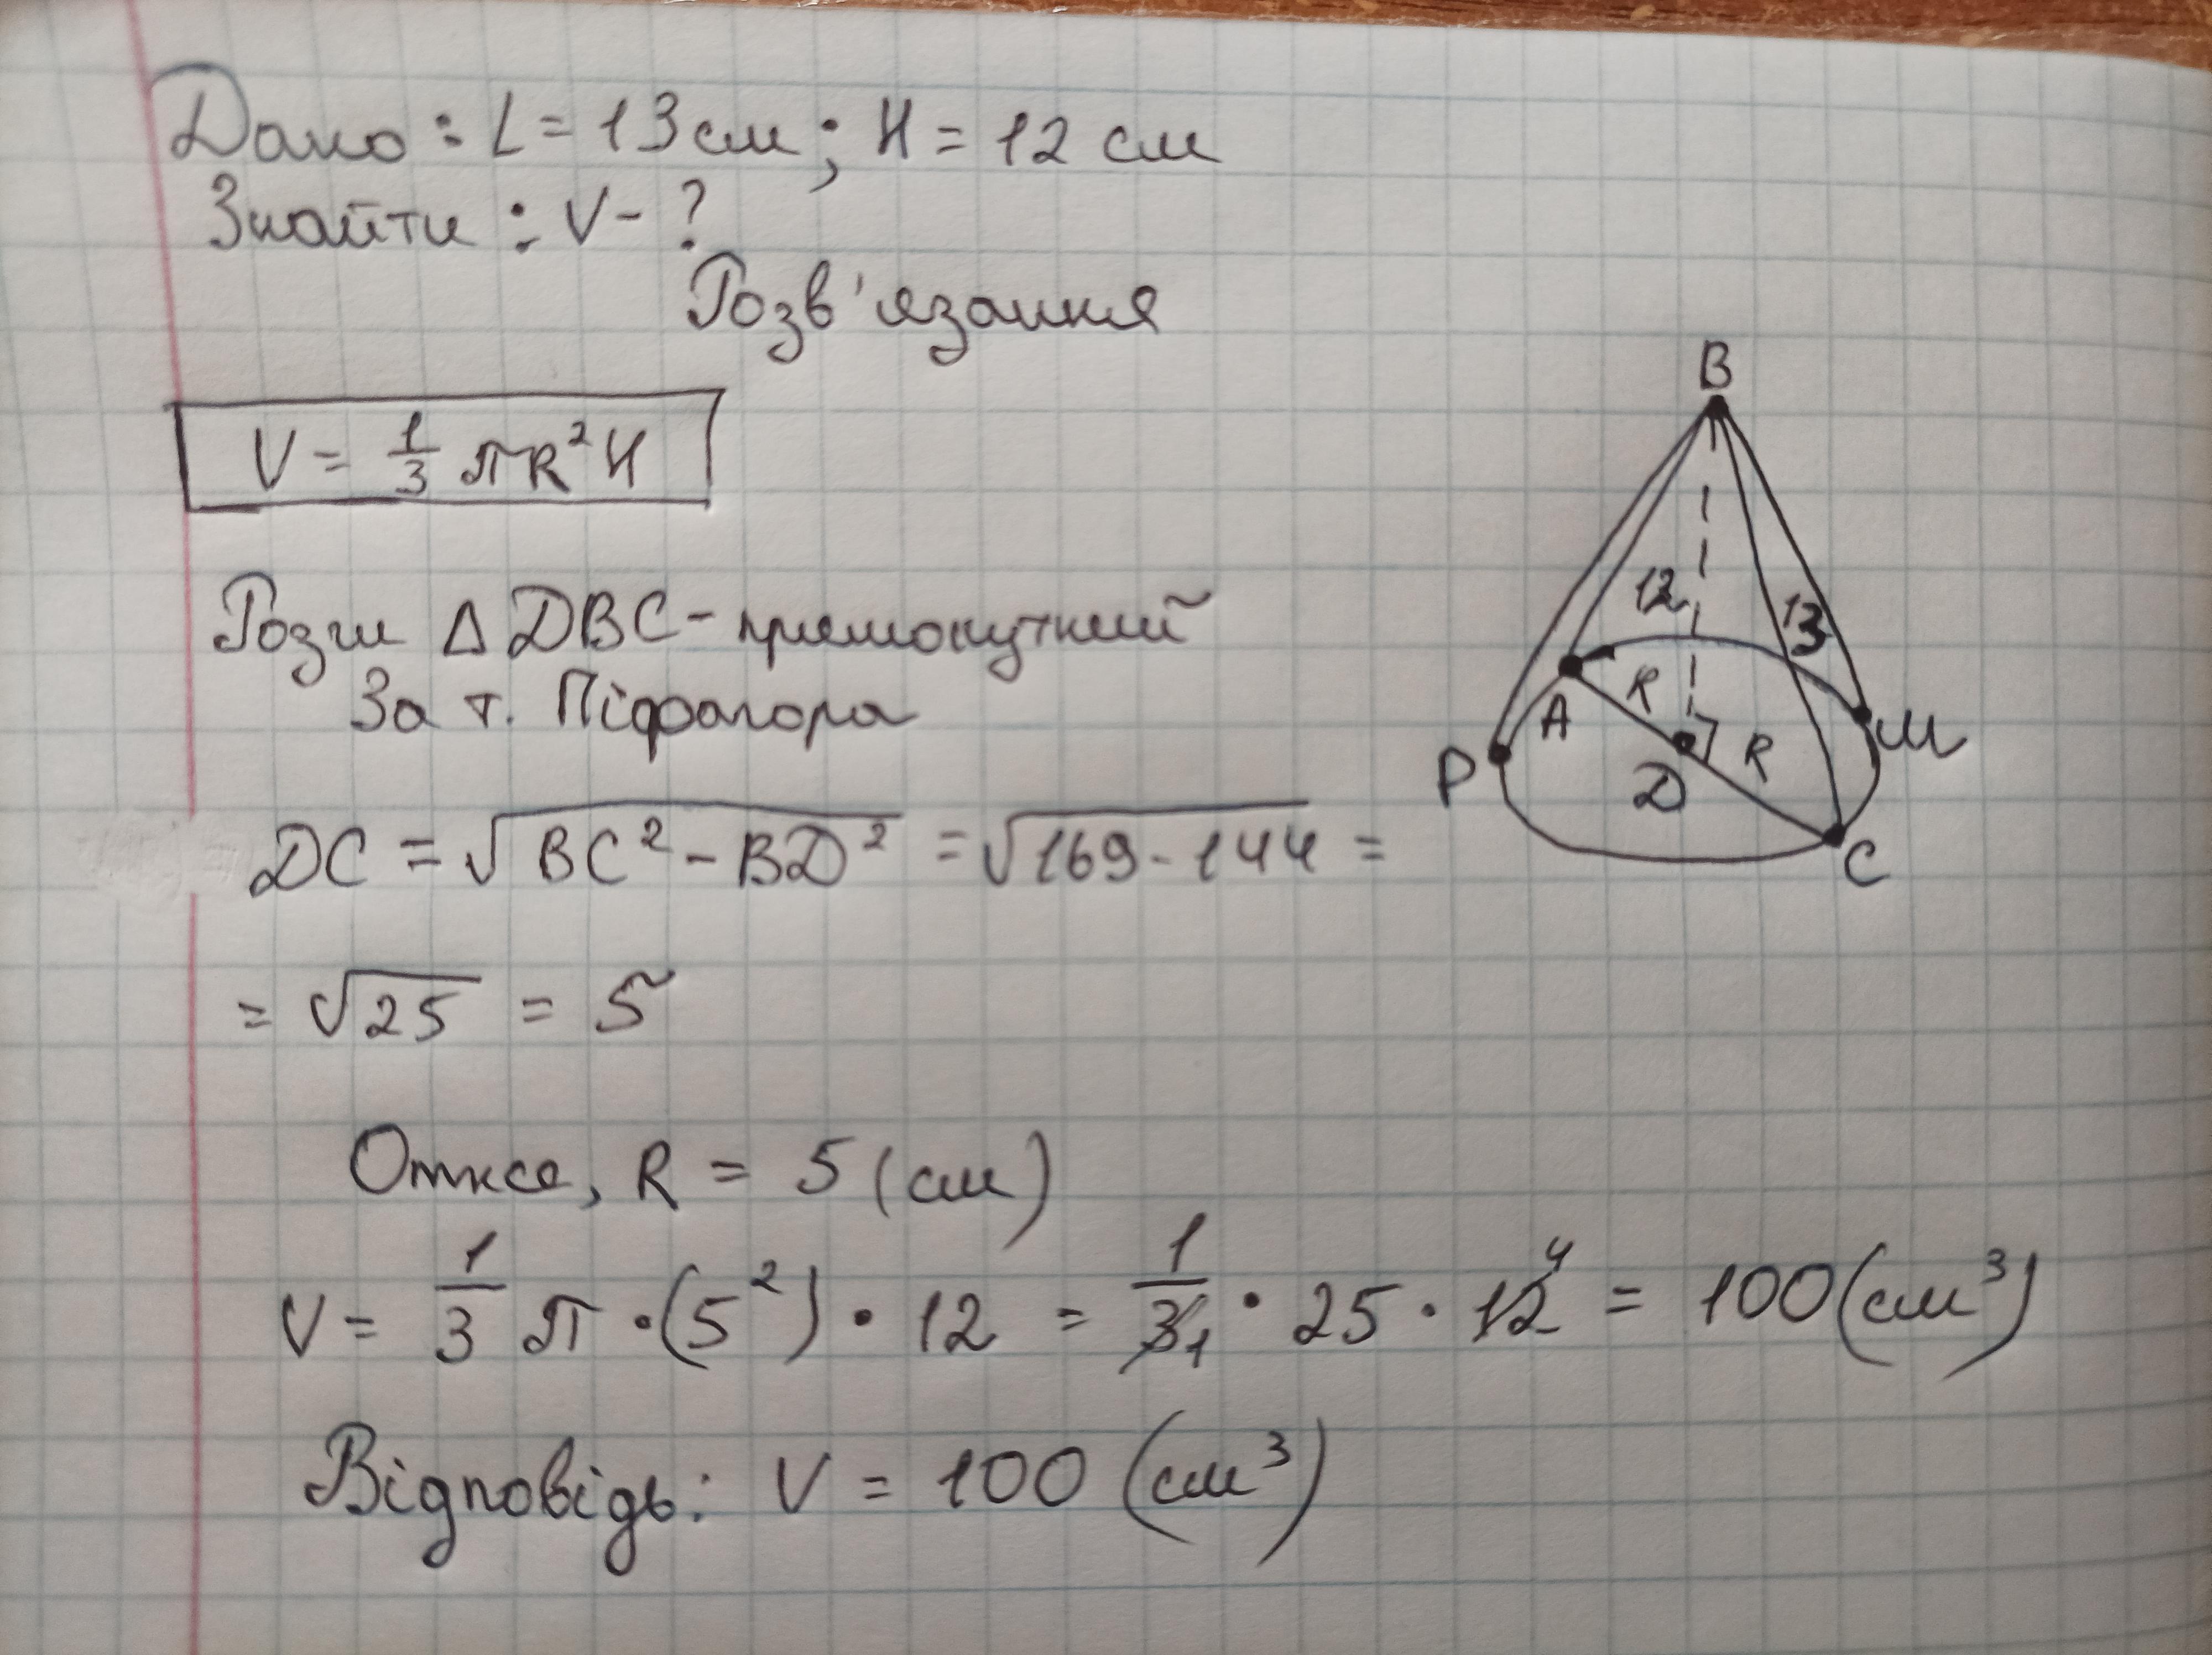 Дано: L = 13 см; H = 12 см
Знайти: V - ?
Розв'язання
V = 1/3 πR²H
Розгл △DBC - прямокутний
За т. Піфагора
DC = √(BC² - BD²) = √(169 - 144) =
= √25 = 5
Отже, R = 5 (см)
V = 1/3 π · (5²) · 12 = 1/3 1 · 25 · 12 4 = 100 (см³)
Відповідь: V = 100 (см³)
B
12
13
A
R
D
R
P
M
C